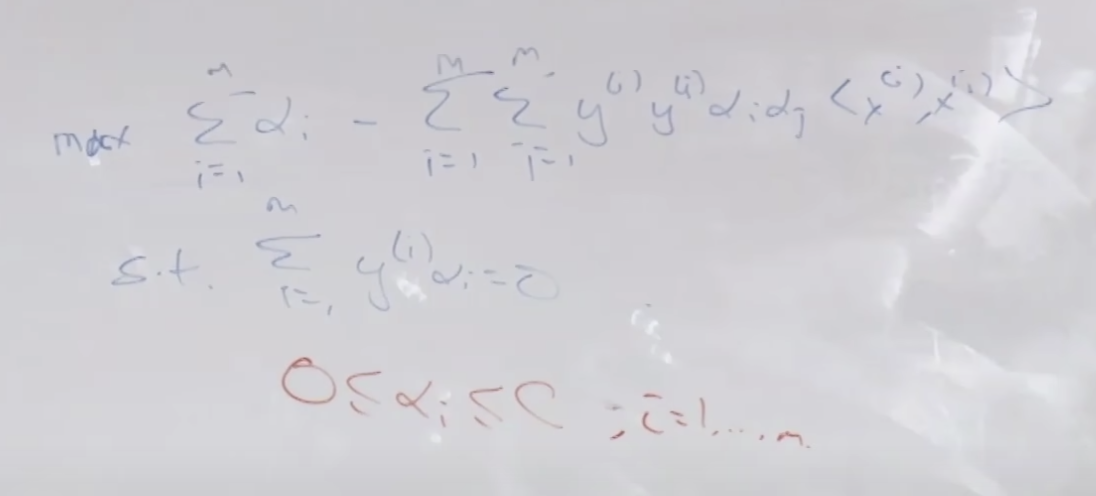 max Σ_{i=1}^{m} α_i - Σ_{i=1}^{m} Σ_{j=1}^{m} y^{(i)} y^{(j)} α_i α_j <x^{(i)}, x^{(j)}>
s.t. Σ_{i=1}^{m} y^{(i)} α_i = 0
0 ≤ α_i ≤ C ; i=1,...,m.